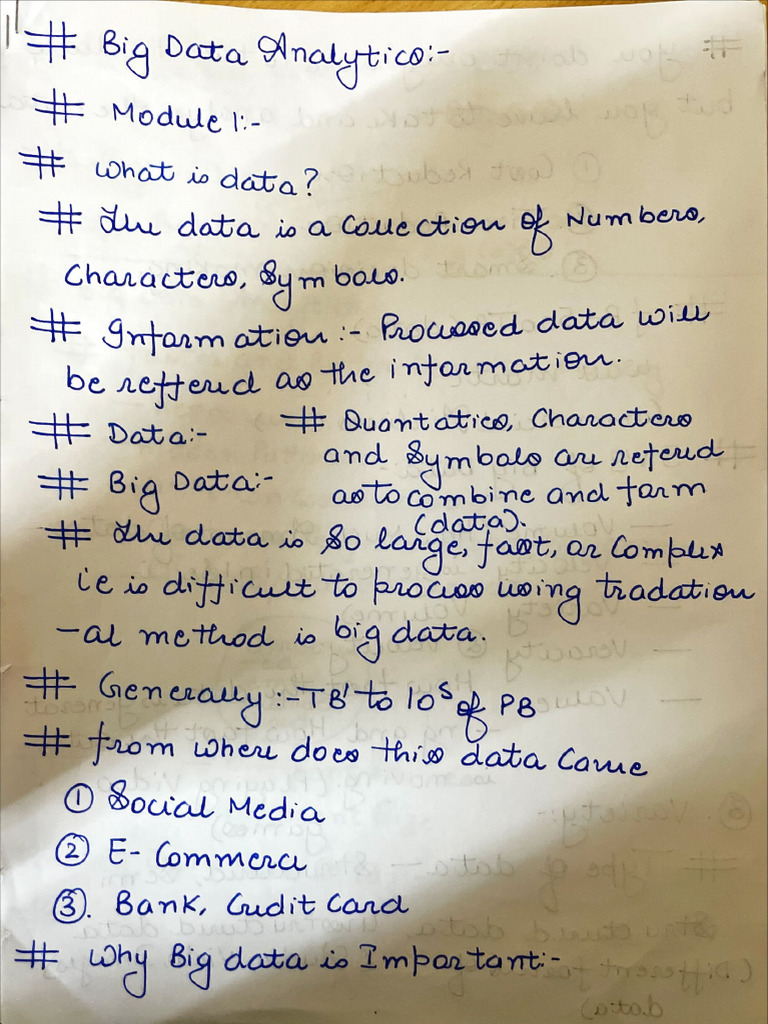 # Big Data Analytics:-
# Module 1:-
# What is data?
# The data is a Collection of Numbers,
Characters, Symbols.
# Information :- Processed data will
be refferd as the information.
# Data:-
# Quantatics, Characters
and Symbols are referd
as to combine and form
(data).
# Big Data:-
# The data is So large, fast, or Complex
i e is difficult to process using tradation
-al method is big data.
# Generally :- TB' to 10^s of PB
# from where does this data Come
① Social Media
② E- Commerce
③. Bank, Credit Card
# Why Big data is Important:-